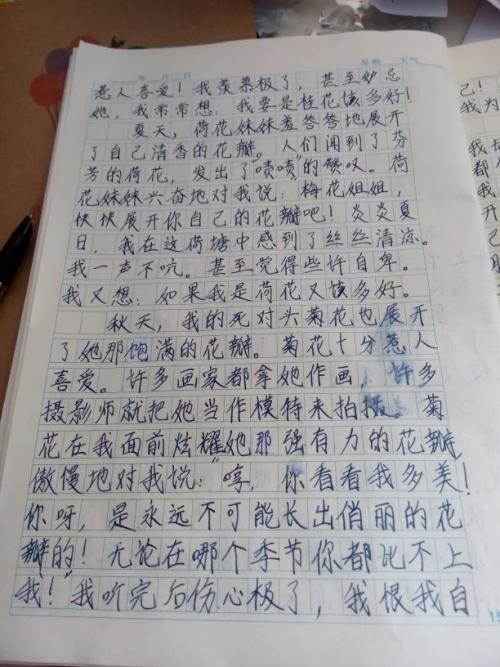 年 月 日 星期 天气
惹人喜爱！我羡慕极了，甚至妒忌
她，我常常想：我要是桂花该多好！
夏天，荷花妹妹羞答答地展开
了自己清香的花瓣。人们闻到了芬
芳的荷花，发出了"啧啧"的赞叹。荷
花妹妹兴奋地对我说：梅花姐姐，
快快展开你自己的花瓣吧！炎炎夏
日，我在这荷塘中感到了丝丝清凉。
我一声不吭。甚至觉得些许自卑。
我又想：如果我是荷花又该多好。
秋天，我的死对头菊花也展开
了她那饱满的花瓣。菊花十分惹人
喜爱。许多画家都拿她作画，许多
摄影师就把她当作模特来拍摄。菊
花在我面前炫耀她那强有力的花瓣，
傲慢地对我说："哼，你看看我多美！
你呀，是永远不可能长出俏丽的花
瓣的！无论在哪个季节你都比不上
我！"我听完后伤心极了，我恨我自